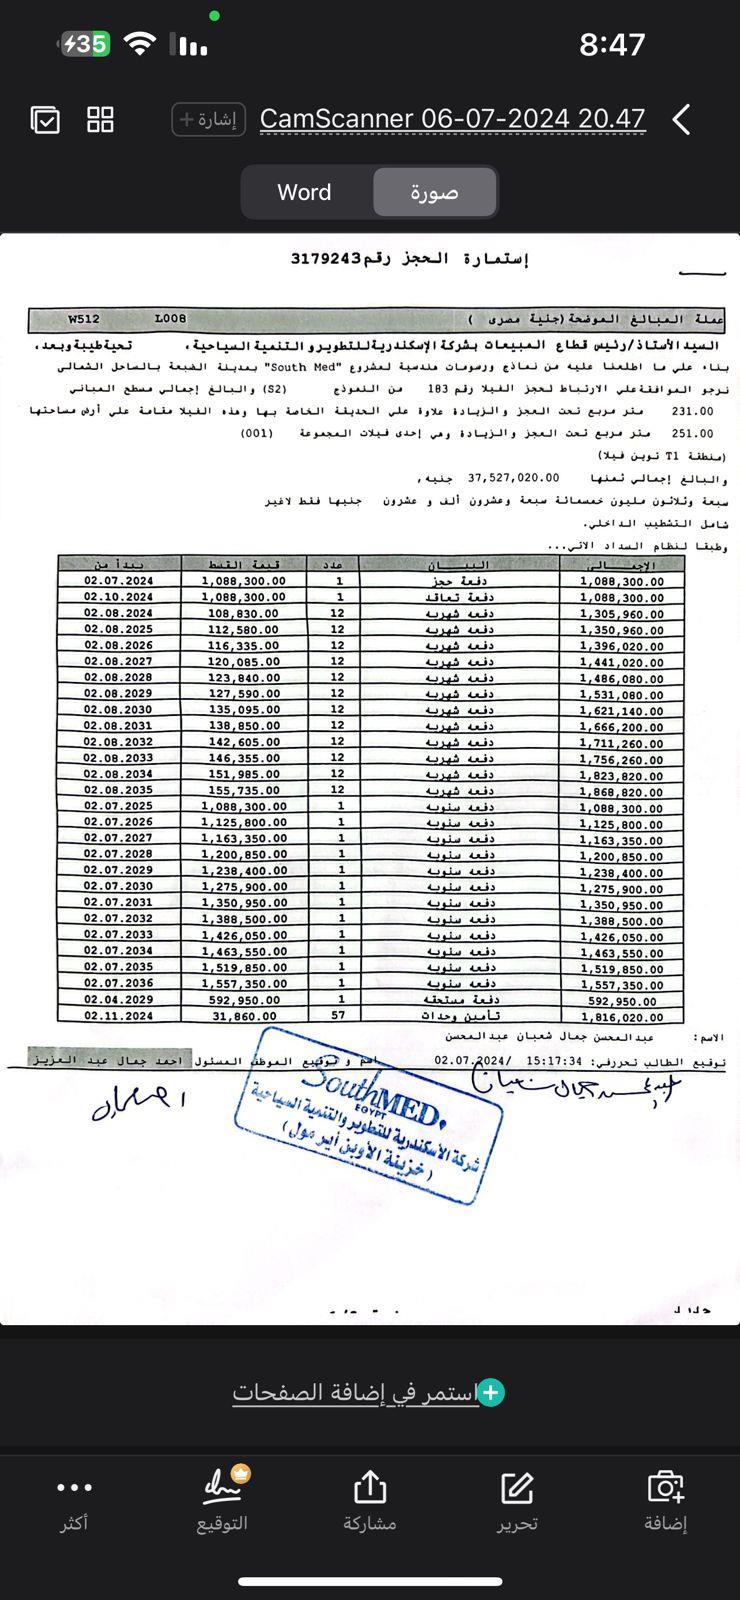 35
8:47
CamScanner 06-07-2024 20.47
إشارة +
صورة
Word
إستمارة الحجز رقم 3179243
عملة المبالغ الموضحة (جنية مصرى ) L008 W512
السيد الأستاذ/رئيس قطاع المبيعات بشركة الإسكندرية للتطوير و التنمية السياحية، تحية طيبة وبعد،
بناء علي ما اطلعنا عليه من نماذج ورسومات هندسية لمشروع "South Med" بمدينة الضبعة بالساحل الشمالى
نرجو الموافقة علي الارتباط لحجز الفيلا رقم 183 من النموذج (S2) والبالغ إجمالي مسطح المباني
231.00 متر مربع تحت العجز والزيادة علاوة علي الحديقة الخاصة بها وهذه الفيلا مقامة علي أرض مساحتها
251.00 متر مربع تحت العجز والزيادة وهي إحدى فيلات المجموعة (001)
(منطقة T1 توين فيلا)
والبالغ إجمالي ثمنها 37,527,020.00 جنيه,
سبعة وثلاثون مليون خمسمائة سبعة وعشرون ألف و عشرون جنيها فقط لاغير
شامل التشطيب الداخلي.
وطبقا لنظام السداد الاتي...
الإجمالى البيــان عدد قيمة القسط يبدأ من
1,088,300.00 دفعة حجز 1 1,088,300.00 02.07.2024
1,088,300.00 دفعة تعاقد 1 1,088,300.00 02.10.2024
1,305,960.00 دفعه شهريه 12 108,830.00 02.08.2024
1,350,960.00 دفعه شهريه 12 112,580.00 02.08.2025
1,396,020.00 دفعه شهريه 12 116,335.00 02.08.2026
1,441,020.00 دفعه شهريه 12 120,085.00 02.08.2027
1,486,080.00 دفعه شهريه 12 123,840.00 02.08.2028
1,531,080.00 دفعه شهريه 12 127,590.00 02.08.2029
1,621,140.00 دفعه شهريه 12 135,095.00 02.08.2030
1,666,200.00 دفعه شهريه 12 138,850.00 02.08.2031
1,711,260.00 دفعه شهريه 12 142,605.00 02.08.2032
1,756,260.00 دفعه شهريه 12 146,355.00 02.08.2033
1,823,820.00 دفعه شهريه 12 151,985.00 02.08.2034
1,868,820.00 دفعه شهريه 12 155,735.00 02.08.2035
1,088,300.00 دفعه سنويه 1 1,088,300.00 02.07.2025
1,125,800.00 دفعه سنويه 1 1,125,800.00 02.07.2026
1,163,350.00 دفعه سنويه 1 1,163,350.00 02.07.2027
1,200,850.00 دفعه سنويه 1 1,200,850.00 02.07.2028
1,238,400.00 دفعه سنويه 1 1,238,400.00 02.07.2029
1,275,900.00 دفعه سنويه 1 1,275,900.00 02.07.2030
1,350,950.00 دفعه سنويه 1 1,350,950.00 02.07.2031
1,388,500.00 دفعه سنويه 1 1,388,500.00 02.07.2032
1,426,050.00 دفعه سنويه 1 1,426,050.00 02.07.2033
1,463,550.00 دفعه سنويه 1 1,463,550.00 02.07.2034
1,519,850.00 دفعه سنويه 1 1,519,850.00 02.07.2035
1,557,350.00 دفعه سنويه 1 1,557,350.00 02.07.2036
592,950.00 دفعة مستحقه 1 592,950.00 02.04.2029
1,816,020.00 تأمين وحدات 57 31,860.00 02.11.2024
الاسم: عبدالمحسن جمال شعبان عبدالمحسن
توقيع الطالب تحررفي: 15:17:34 /02.07.2024 اسم و توقيع الموظف المسئول احمد جمال عبد العزيز
SouthMED
EGYPT
شركة الأسكندرية للتطوير والتنمية السياحية
(خزينة الأوبن أير مول)
استمر في إضافة الصفحات
إضافة
تحرير
مشاركة
التوقيع
أكثر